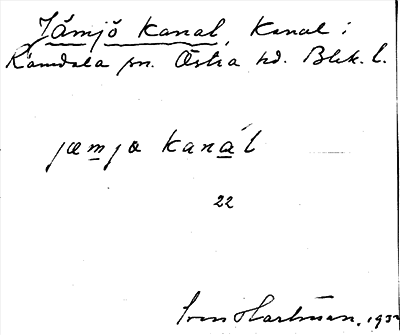 Jämjö kanal, Kanal i
Ramdala sn. Östra hd. Blek. l.
jæmjœ kanál
22
Sven Hartman, 193